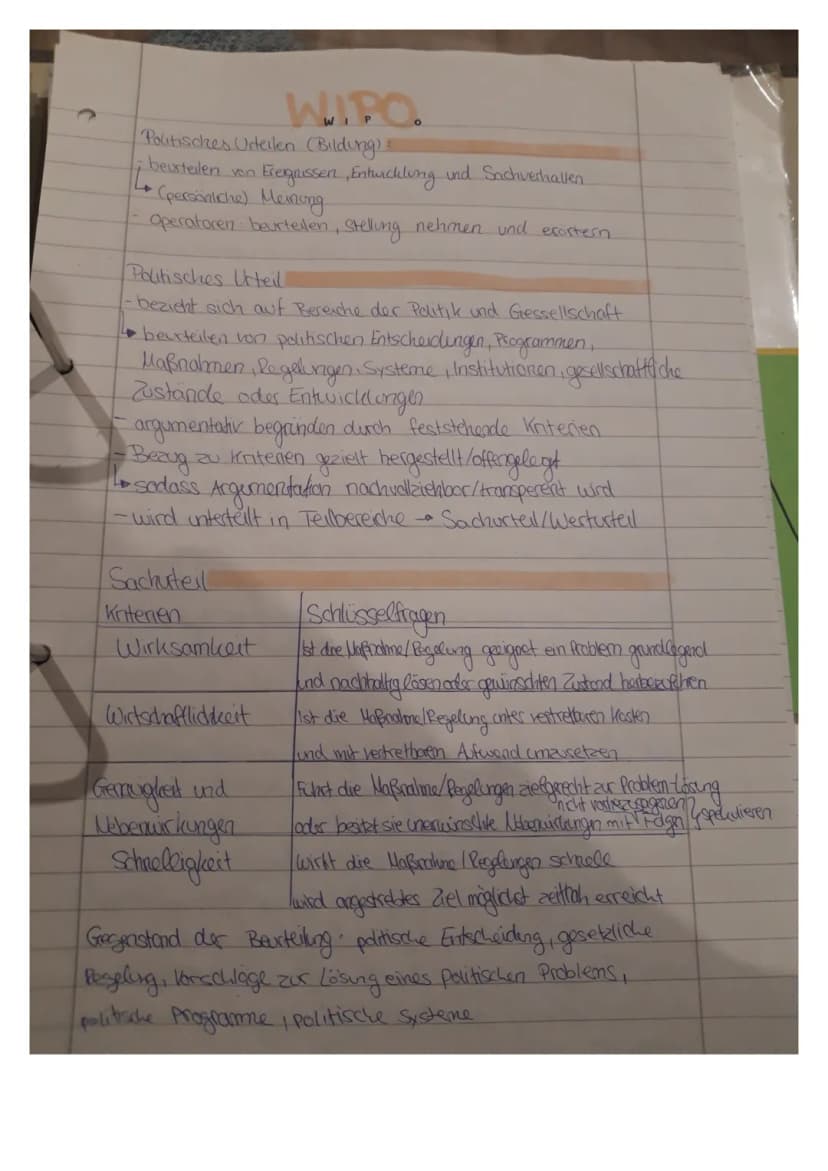 WIPO
W I P O
Politisches Urteilen (Bildung):
- beurteilen von Ereignissen, Entwicklung und Sachverhalten
↳ (persönliche) Meinung
- Operatoren: beurteilen, Stellung nehmen und erörtern
Politisches Urteil
- bezieht sich auf Bereiche der Politik und Gessellschaft
↳ beurteilen von politischen Entscheidungen, Programmen,
Maßnahmen, Regelungen, Systeme, Institutionen, gesellschaftliche
Zustände oder Entwicklungen
- argumentativ begründen durch feststehende Kriterien
- Bezug zu Kriterien gezielt hergestellt/offengelegt
↳ sodass Argumentation nachvollziehbar/transperent wird
- wird unterteilt in Teilbereiche → Sachurteil/Werturteil
Sachurteil
Kriterien Schlüsselfragen
Wirksamkeit Ist die Maßnahme/Regelung geeignet ein Problem grundlegend
und nachhaltig lösen oder gewünschten Zustand herbeizuführen
Wirtschaftlichkeit Ist die Maßnahme/Regelung unter vertretbaren Kosten
und mit vertretbaren Aufwand umzusetzen
Genauigkeit und Führt die Maßnahme/Regelungen zielgerecht zur Problem-Lösung
Nebenwirkungen oder besitzt sie unerwünschte Nebenwirkungen mit nicht Folgen spekulieren
Schnelligkeit Wirkt die Maßnahme/Regelungen schnell
wird angestrebtes Ziel möglichst zeitnah erreicht
Gegenstand der Beurteilung: politische Entscheidung, gesetzliche
Regelung, Vorschläge zur Lösung eines politischen Problems,
politische Programme, politische Systeme